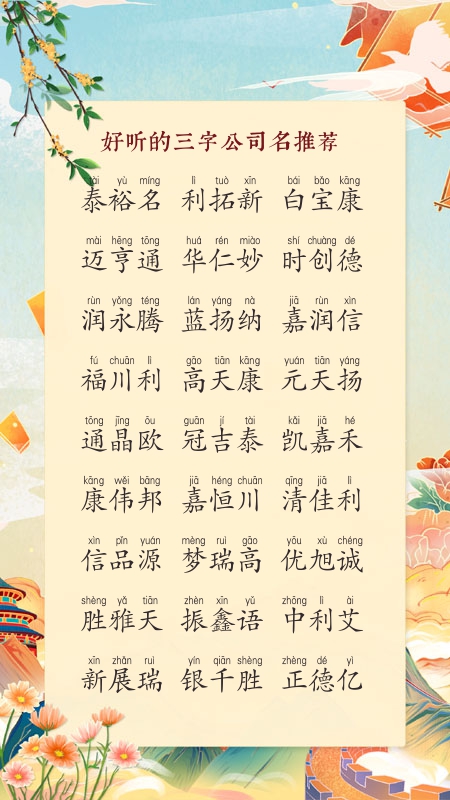 好听的三字公司名推荐
tài yù míng lì tuò xīn bái bǎo kāng
泰裕名 利拓新 白宝康
mài hēng tōng huá rén miào shí chuàng dé
迈亨通 华仁妙 时创德
rùn yǒng téng lán yáng nà jiā rùn xìn
润永腾 蓝扬纳 嘉润信
fú chuān lì gāo tiān kāng yuán tiān yáng
福川利 高天康 元天扬
tōng jīng ōu guān jí tài kǎi jiā hé
通晶欧 冠吉泰 凯嘉禾
kāng wěi bāng jiā héng chuān qīng jiā lì
康伟邦 嘉恒川 清佳利
xìn pǐn yuán mèng ruì gāo yōu xù chéng
信品源 梦瑞高 优旭诚
shèng yǎ tiān zhèn xīn yǔ zhōng lì ài
胜雅天 振鑫语 中利艾
xīn zhǎn ruì yín qiān shèng zhèng dé yì
新展瑞 银千胜 正德亿